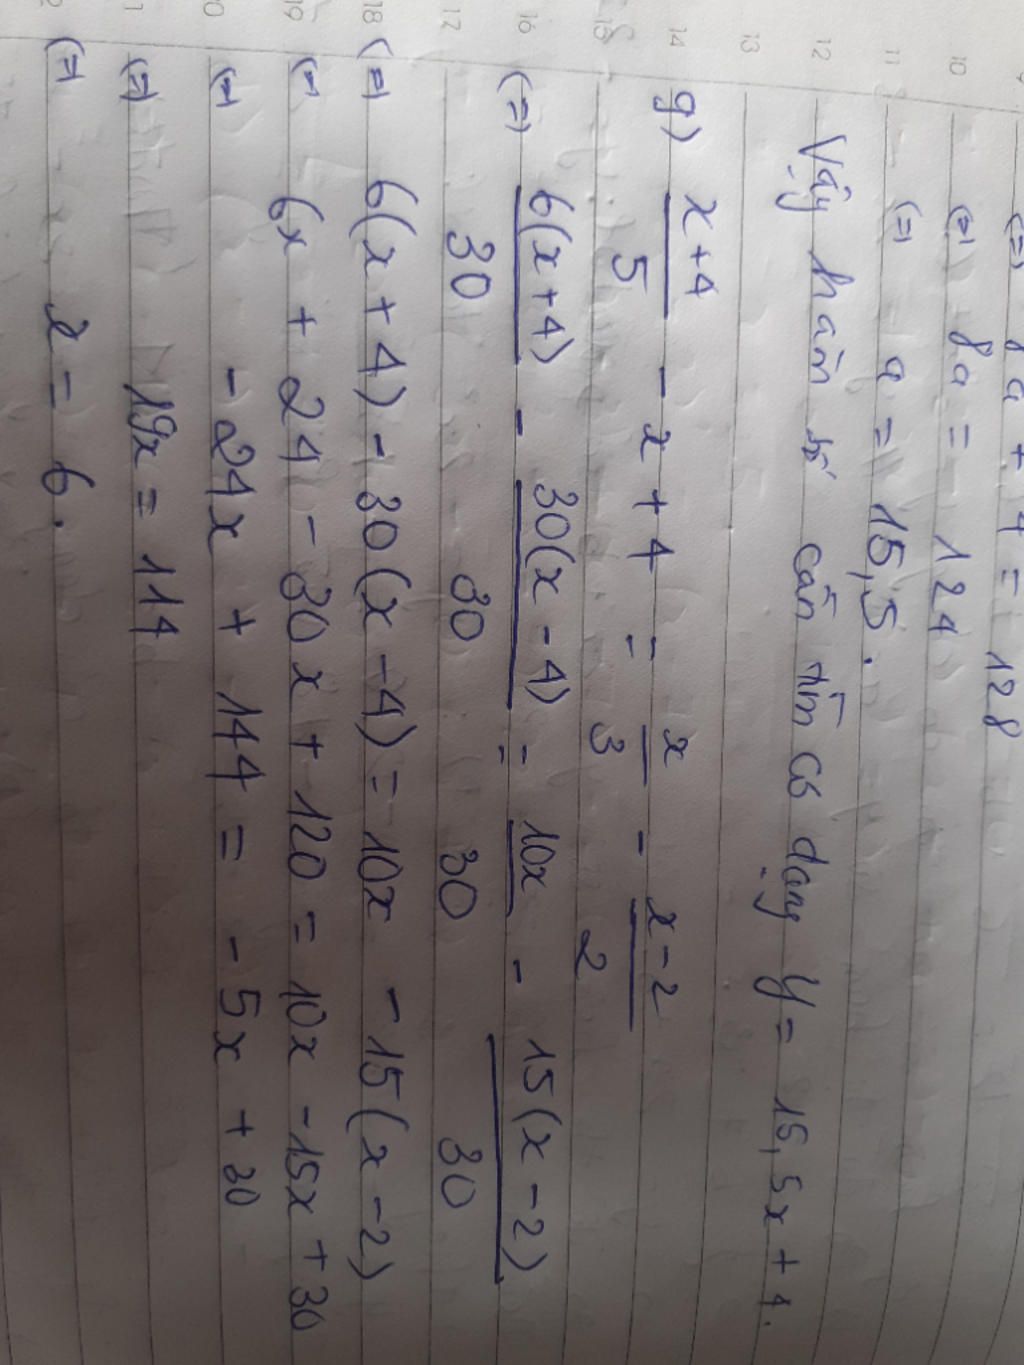 (=) 8a + 4 = 128
(=) 8a = 124
(=) a = 15,5.
Vậy hàm số cần tìm có dạng y = 15,5x + 4.
g) x+4/5 - x + 4 = x/3 - x-2/2
(=) 6(x+4)/30 - 30(x-4)/30 = 10x/30 - 15(x-2)/30
(=) 6(x+4) - 30(x-4) = 10x - 15(x-2)
(=) 6x + 24 - 30x + 120 = 10x - 15x + 30
(=) -24x + 144 = -5x + 30
(=) 19x = 114
(=) x = 6.
10
11
12
13
14
15
16
17
18
19
20